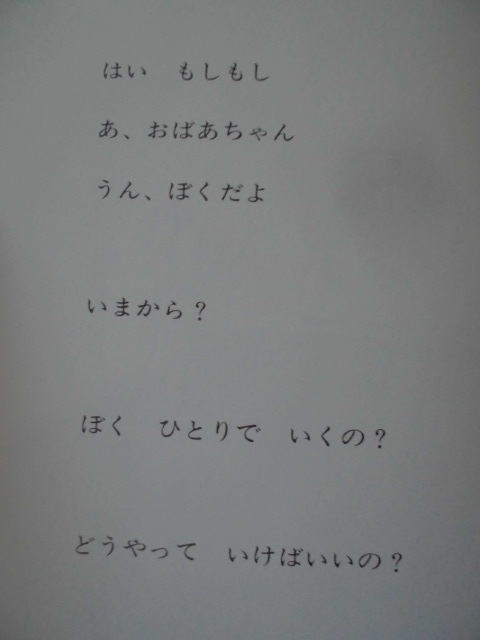 はい　もしもし
あ、おばあちゃん
うん、ぼくだよ
いまから？
ぼく　ひとりで　いくの？
どうやって　いけばいいの？